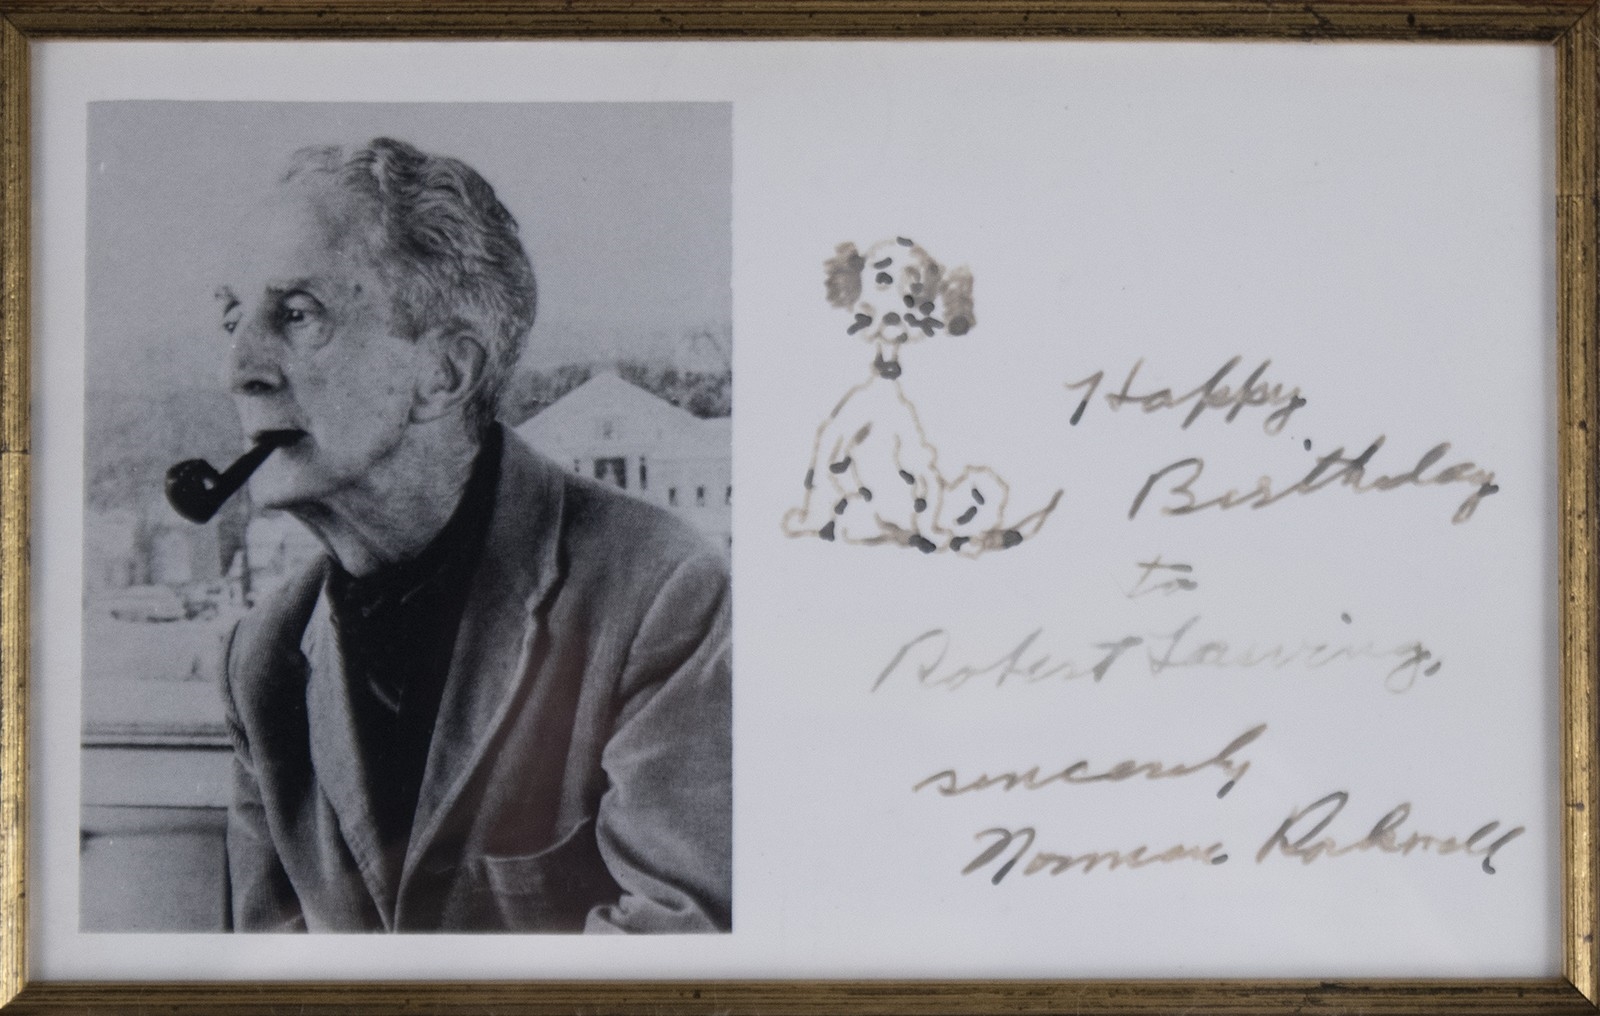 Happy
Birthday
to
Robert Lawing,
sincerely
Norman Rockwell